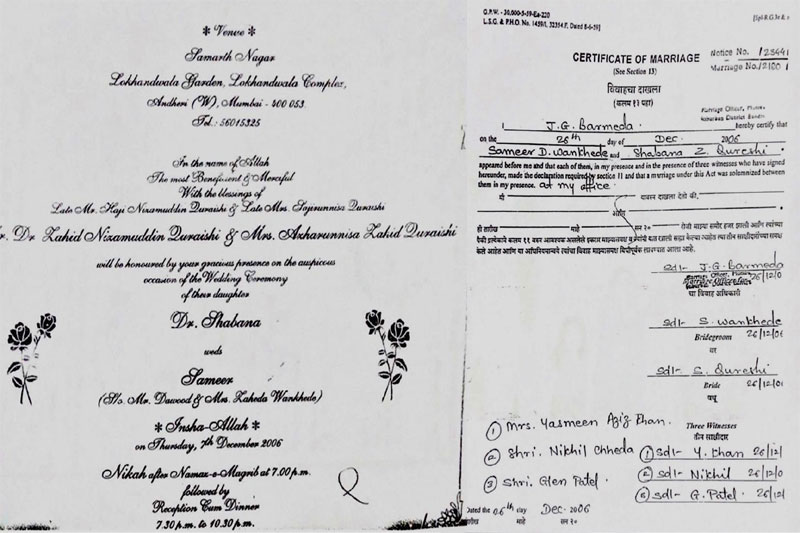 * Venue *
Samarth Nagar
Lokhandwala Garden, Lokhandwala Complex,
Andheri (W), Mumbai - 400 053.
Tel.: 56015325
In the name of Allah
The most Beneficent & Merciful
With the blessings of
Late Mr. Haji Nizamuddin Quraishi & Late Mrs. Sajirunnisa Quraishi
Dr Zahid Nizamuddin Quraishi & Mrs. Azharunnisa Zahid Quraishi
will be honoured by your gracious presence on the auspicious
occasion of the Wedding Ceremony
of their daughter
Dr. Shabana
weds
Sameer
(S/o. Mr. Dawood & Mrs. Zaheda Wankhede)
* Insha-Allah *
on Thursday, 7th December 2006
Nikah after Namaz-e-Magrib at 7.00 p.m.
followed by
Reception Cum Dinner
7.30 p.m. to 10.30 p.m.
G.P.W. - 30,000-5-59-Ea-220
L.S.G. & P.H.D. No. 1459/I, 32354 F. Dated 8-6-59]
CERTIFICATE OF MARRIAGE
(See Section 13)
Notice No. /23441
Marriage No./2100
विवाहाचा दाखला
Marriage Officer,
District Bandra
I J.G. Barmeda hereby certify that
on the day of Dec. 2006
Sameer D. Wankhede and Shabana Z. Qureshi
appeared before me and that each of them, in my presence and in the presence of three witnesses who have signed
hereunder, made the declaration required by section 11 and that a marriage under this Act was solemnized between
them in my presence. at my office.
मी दाखला देतो की,
आणि
ही तारीख माहे सन २० रोजी माझ्या समोर हजर झाली आणि त्यांच्या
sd/- J.G. Barmeda
26/12/0
या विवाह अधिकारी
sd/- S. Wankhede
Bridegroom 26/12/06
वर
sd/- S. Qureshi
Bride 26/12/0
वधू
① Mrs. Yasmeen Aziz Khan.
② Shri. Nikhil Chheda
③ Shri. Glen Patel.
Three Witnesses
तीन साक्षीदार
① sd/- Y. Khan 26/12/
② sd/- Nikhil 26/12/0
③ sd/- G. Patel 26/12/
Dated the day Dec. 2006
तारीख माहे सन २०